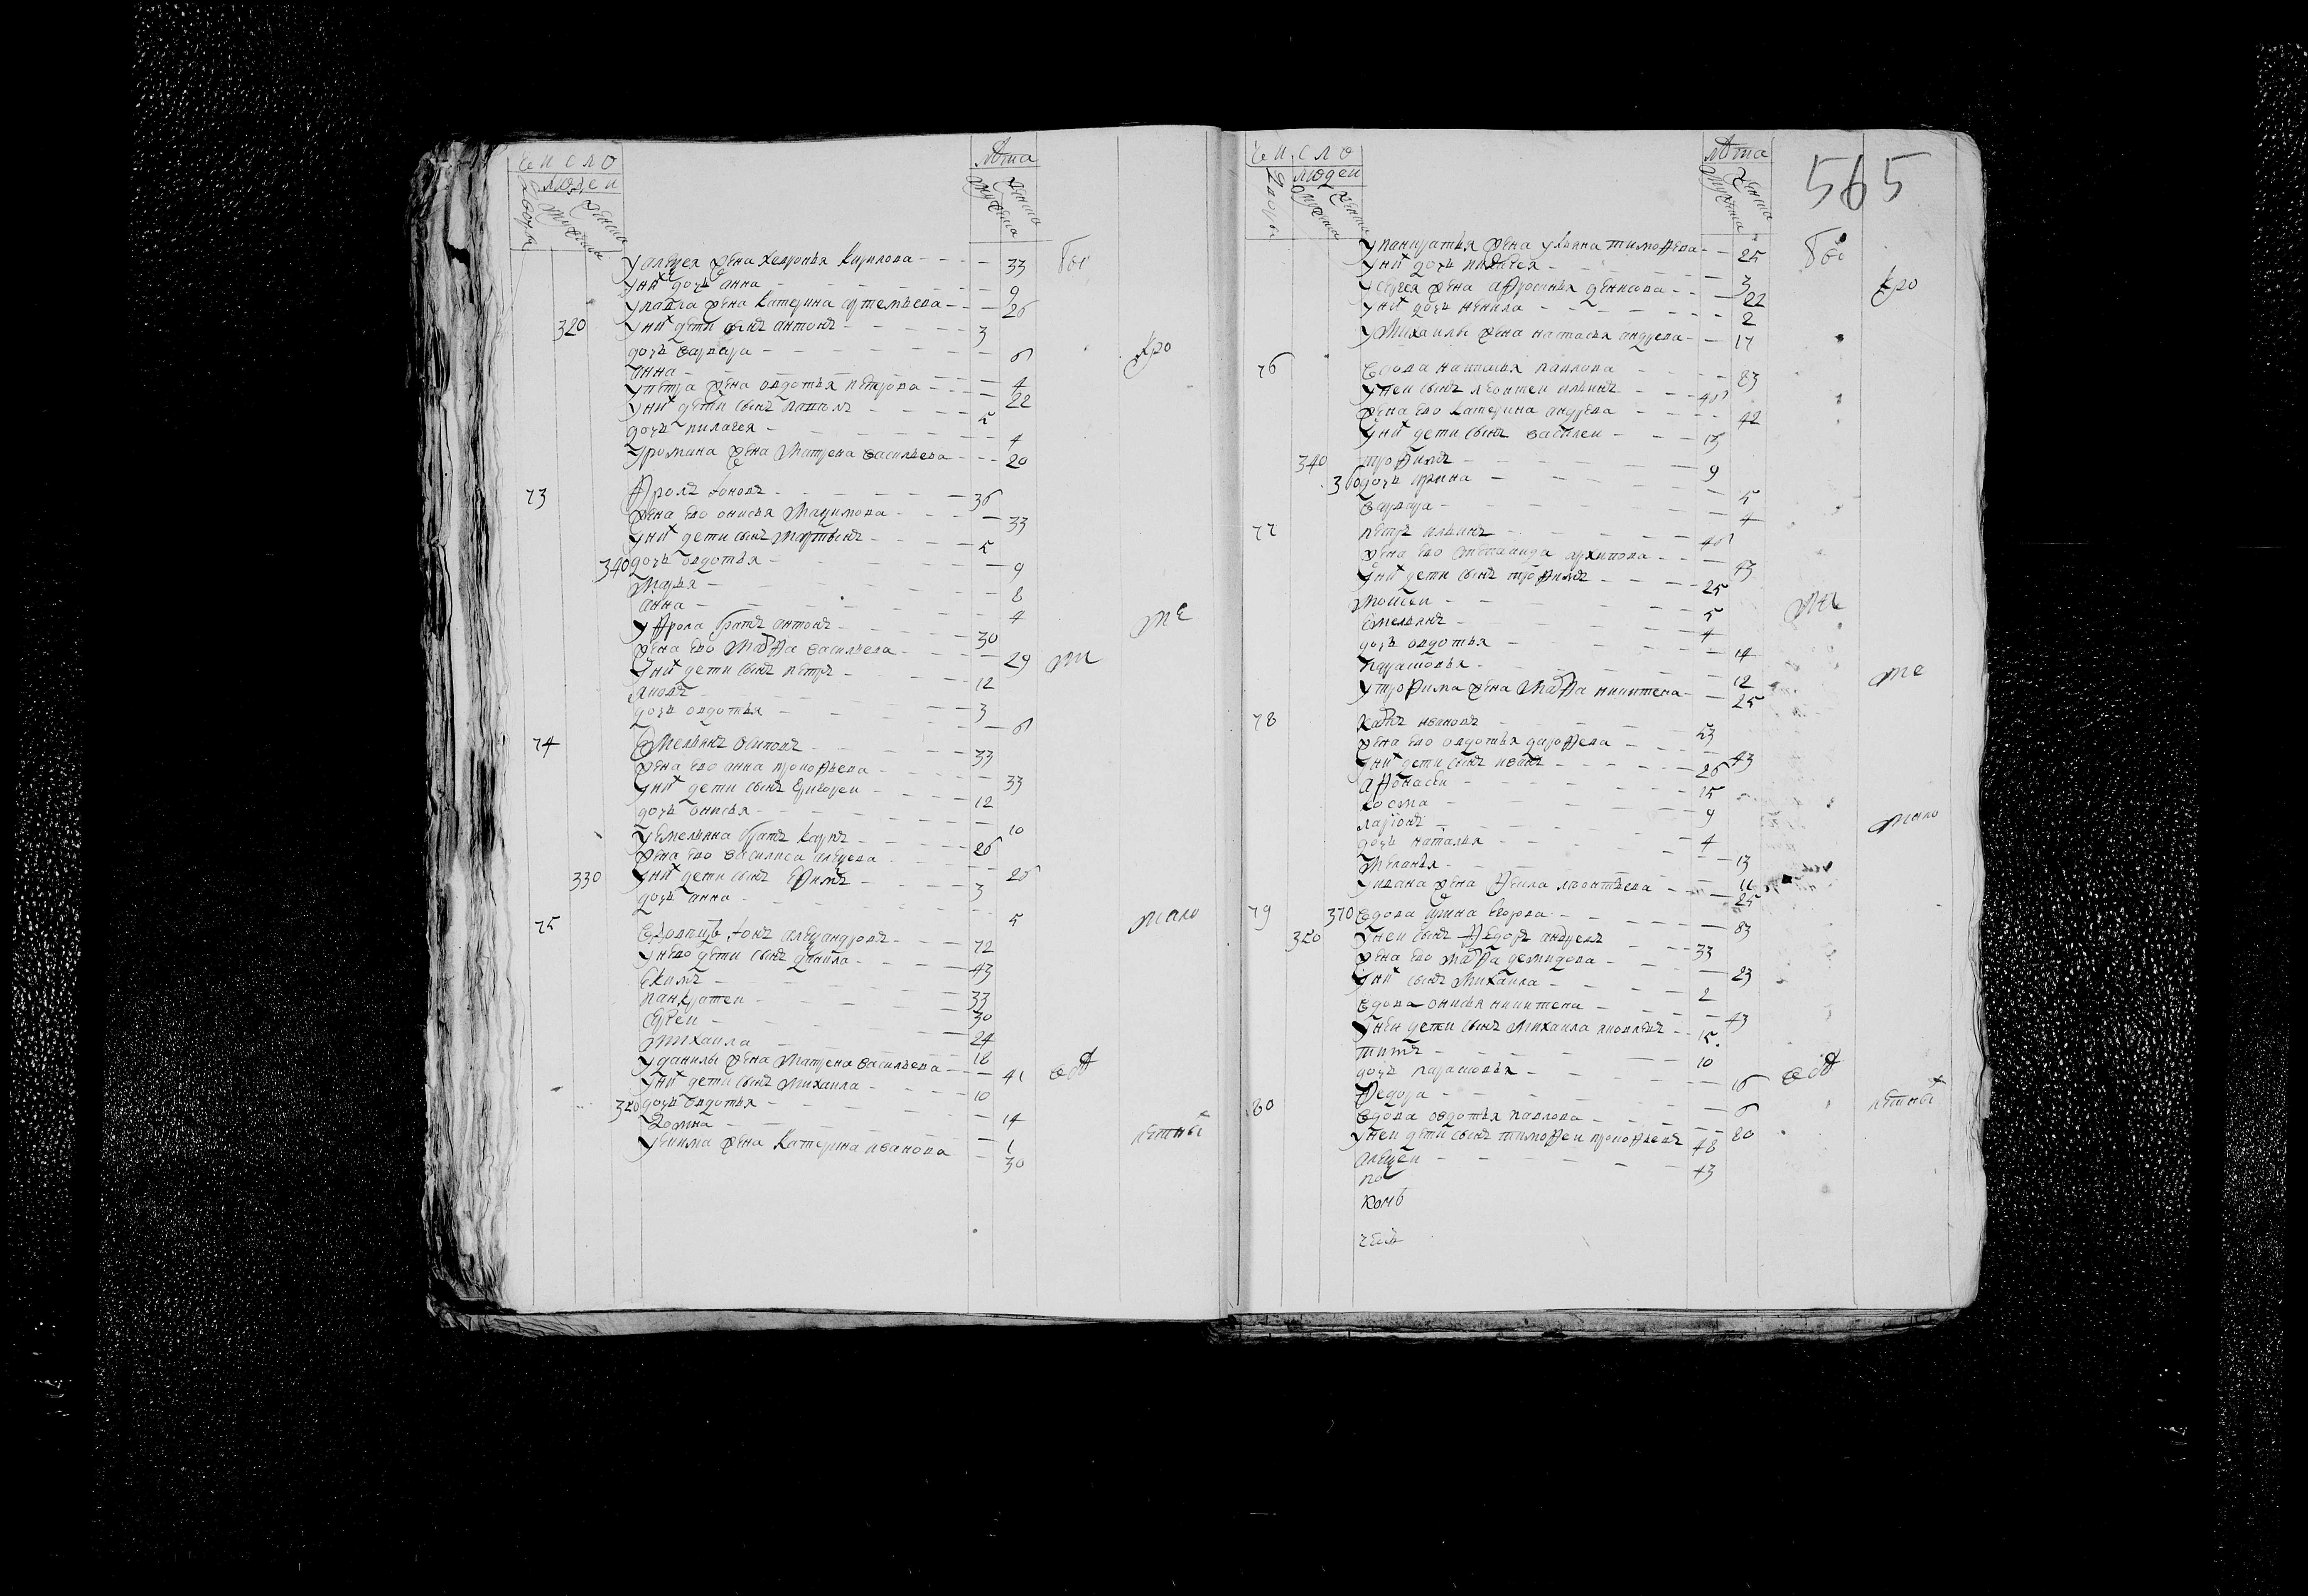 число
людеи
лѣта
у алеѯея жена хевронья кирилова 33
у них дочь анна 9
у павла жена катерина артемьева 26
320 у них дети сынъ антонъ 3
дочь варвара 6
анна 4
у петра жена овдотья петрова 22
у них дети сынъ 5
дочь пилагея 4
у романа жена матрена васильева 20
73 ѳролъ 36
жена ево онисья маѯимова 33
у них дети сынъ мартынъ 5
340 дочь овдотья 9
марья 8
анна 4
у ѳрола братъ антонъ 30
жена ево марѳа васильева 29
у них дети сынъ петръ 12
яковъ 3
дочь овдотья 6
74 емельянъ осиповъ 33
жена ево анна прокоѳьева 33
у них дети сынъ григореи 12
дочь онисья 10
у емельяна братъ карпъ 26
жена ево василиса алеѯеева 26
330 у них дети сынъ ефимъ 3
дочь анна 5
75 вдовецъ алеѯандровъ 72
у нево дети сынъ данила 43
екимъ 33
панкратеи 30
сергеи 24
михаила 18
у данилы жена матрена васильева 41
у них дети сынъ михаила 10
350 дочь овдотья 14
домна 1
у екима жена катерина иванова 30
бы
кро
ме
ме
мало
вѣ
летных
число
людеи
лѣта
565
у панкратья жена ульяна тимоѳеева 25
у них дочь пилагея 3
у сергея жена афросинья денисова 22
у них дочь ненила 2
у михаилы жена настасья андреева 17
76 вдова наталья павлова 83
у неи сынъ леонтеи ильинъ
жена ево катерина андреева 42
у них дети сынъ василеи 13
340 трофимъ 9
360 дочь ирина 5
варвара 4
77 петръ ильинъ
жена ево степанида архипова 43
у них дети сынъ трофимъ 25
моисеи 5
емельянъ 4
дочь овдотья 14
парасковья 12
у трофима жена марѳа никитина 25
78 карпъ ивановъ 53
жена ево овдотья дороѳеева 43
у них дети сынъ иванъ 26
аѳонасеи 15
косма 9
ларионъ 4
дочь наталья 13
меланья 11
у ивана жена ѳекла леонтьева 25
79 370 вдова арина егорова 83
350 у неи сынъ ѳедоръ андреевъ 33
жена ево марѳа демидова 23
у них сынъ михаила 2
вдова онисья никитина 43
у неи дети сынъ михаила яковлевъ 15
титъ 10
дочь парасковья 16
федора 6
80 вдова овдотья павлова 80
у неи дети сынъ тимоѳеи прокоѳьевъ 48
алеѯеи 43
по
конь
честь
бы
кро
ме
ме
мало
вѣ
летных